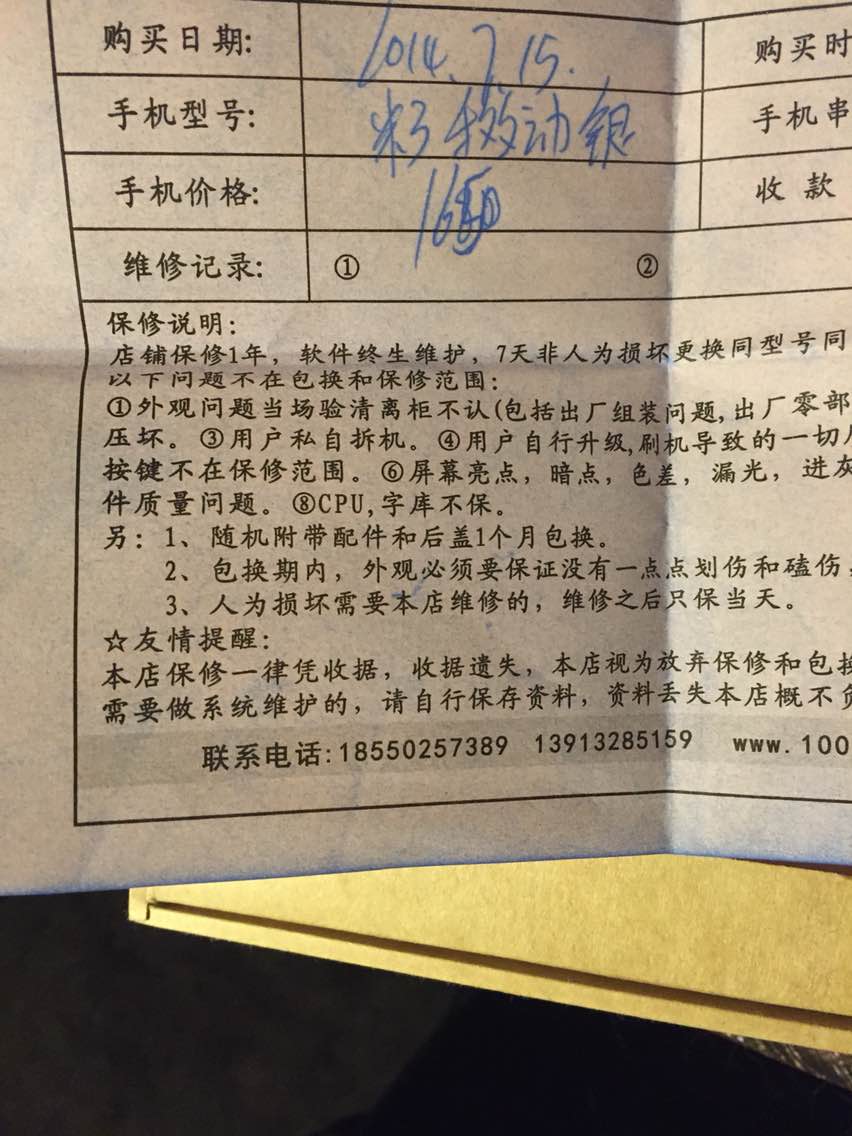 购买日期: 2014.7.15. 购买时
手机型号: 米3移动银 手机串
手机价格: 收款
维修记录: ① ②
保修说明:
店铺保修1年，软件终生维护，7天非人为损坏更换同型号同
以下问题不在包换和保修范围:
①外观问题当场验清离柜不认(包括出厂组装问题,出厂零部
压坏。③用户私自拆机。④用户自行升级,刷机导致的一切
按键不在保修范围。⑥屏幕亮点，暗点，色差，漏光，进灰
件质量问题。⑧CPU,字库不保。
另: 1、随机附带配件和后盖1个月包换。
2、包换期内，外观必须要保证没有一点点划伤和磕伤，
3、人为损坏需要本店维修的，维修之后只保当天。
☆友情提醒:
本店保修一律凭收据，收据遗失，本店视为放弃保修和包换
需要做系统维护的，请自行保存资料，资料丢失本店概不负
联系电话:18550257389 13913285159 www.100